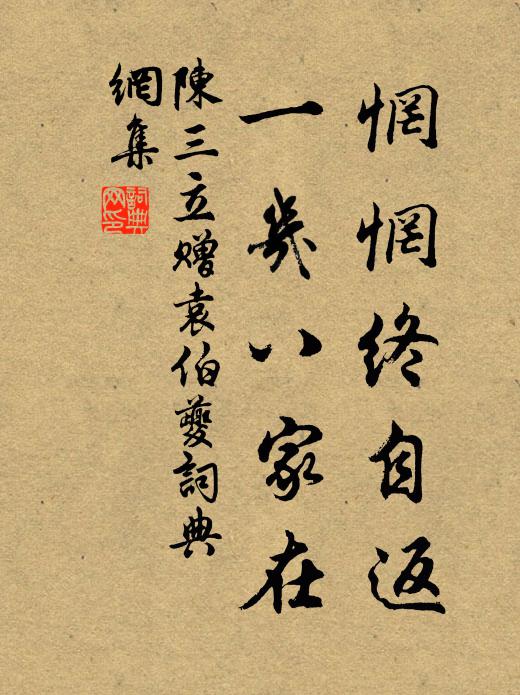 惘惘終自返
一幾八家在
陳三立贈袁伯夔詞典
網集
詞典
網印